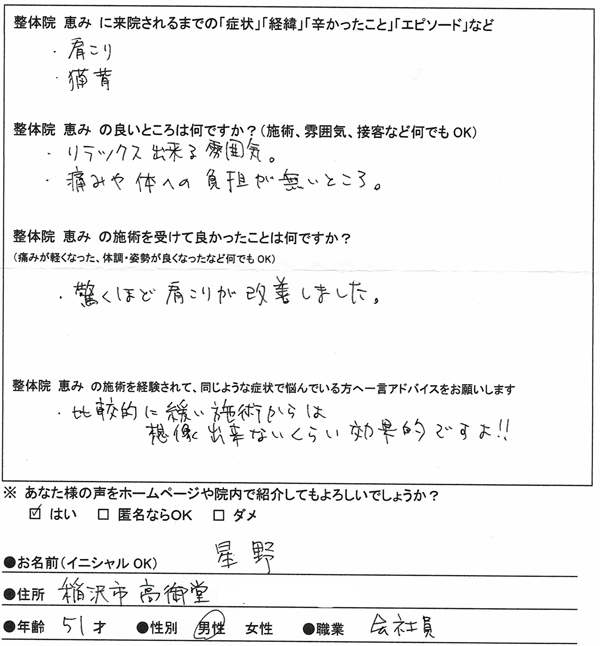 整体院 恵み に来院されるまでの「症状」「経緯」「辛かったこと」「エピソード」など
・肩こり
・猫背
整体院 恵み の良いところは何ですか?(施術、雰囲気、接客など何でもOK)
・リラックス出来る雰囲気。
・痛みや体への負担が無いところ。
整体院 恵み の施術を受けて良かったことは何ですか?
(痛みが軽くなった、体調・姿勢が良くなったなど何でもOK)
・驚くほど肩こりが改善しました。
整体院 恵み の施術を経験されて、同じような症状で悩んでいる方へ一言アドバイスをお願いします
・比較的に緩い施術からは
想像出来ないくらい効果的ですよ!!
※ あなた様の声をホームページや院内で紹介してもよろしいでしょうか?
☑ はい □ 匿名ならOK □ ダメ
●お名前(イニシャルOK) 星野
●住所 稲沢市高御堂
●年齢 51才 ●性別 男性 女性 ●職業 会社員